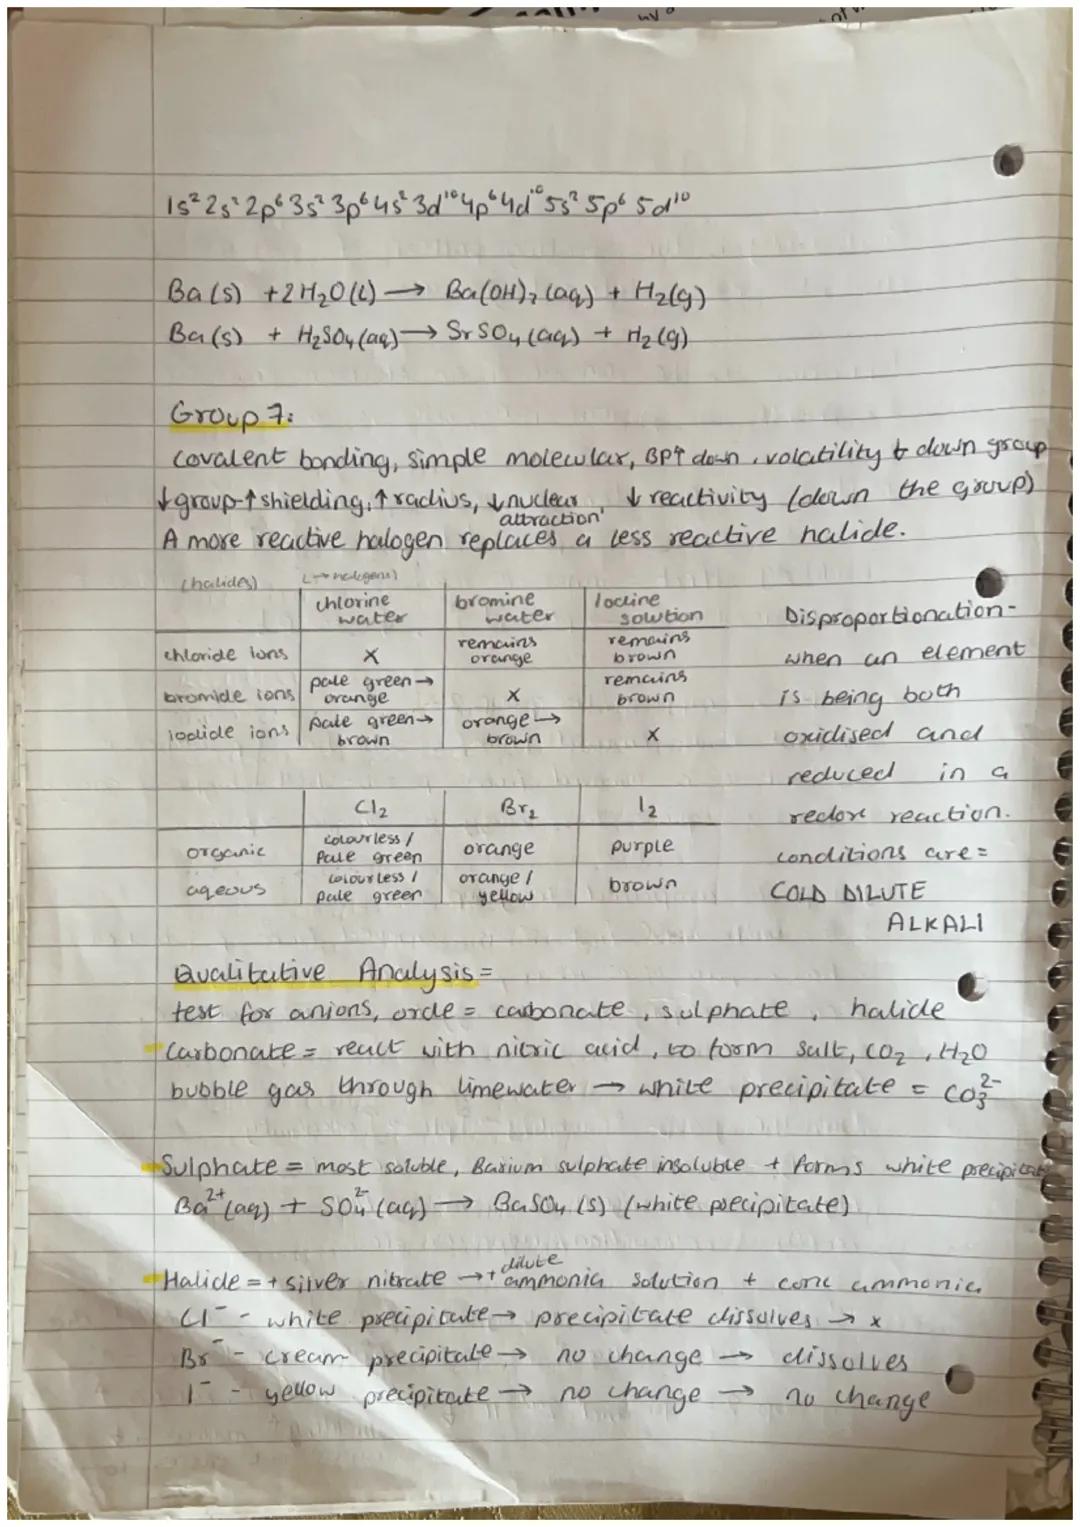 1s² 2s² 2p⁶ 3s² 3p⁶ 4s² 3d¹⁰ 4p⁶ 4d¹⁰ 5s² 5p⁶ 5d¹⁰
Ba(s) + 2H₂O(l) → Ba(OH)₂(aq) + H₂(g)
Ba(s) + H₂SO₄(aq) → SrSO₄(aq) + H₂(g)
Group 7:
covalent bonding, simple molecular, BP↑ down, volatility ↓ down group
↓group-↑shielding, ↑radius, ↓nuclear attraction, ↓ reactivity (down the group)
A more reactive halogen replaces a less reactive halide.
(halides) (→ halogens)
chlorine water bromine water Iodine solution
chloride ions x remains orange remains brown
bromide ions pale green → orange x remains brown
iodide ions pale green → brown orange → brown x
Disproportionation-
when an element
is being both
oxidised and
reduced in a
redox reaction.
conditions are =
COLD DILUTE
ALKALI
Cl₂ Br₂ I₂
organic colourless / Pale green orange purple
aqeous colourless / pale green orange / yellow brown
Qualitative Analysis =
test for anions, orde = carbonate, sulphate, halide
Carbonate = react with nitric acid, to form salt, CO₂, H₂O
bubble gas through limewater → white precipitate = CO₃²⁻
Sulphate = most soluble, Barium sulphate insoluble + forms white precipitate
Ba²⁺(aq) + SO₄²⁻(aq) → BaSO₄(s) (white precipitate)
Halide = + silver nitrate → + dilute ammonia solution + conc ammonia
Cl⁻ - white precipitate → precipitate dissolves → x
Br⁻ - cream precipitate → no change → dissolves
I⁻ - yellow precipitate → no change → no change